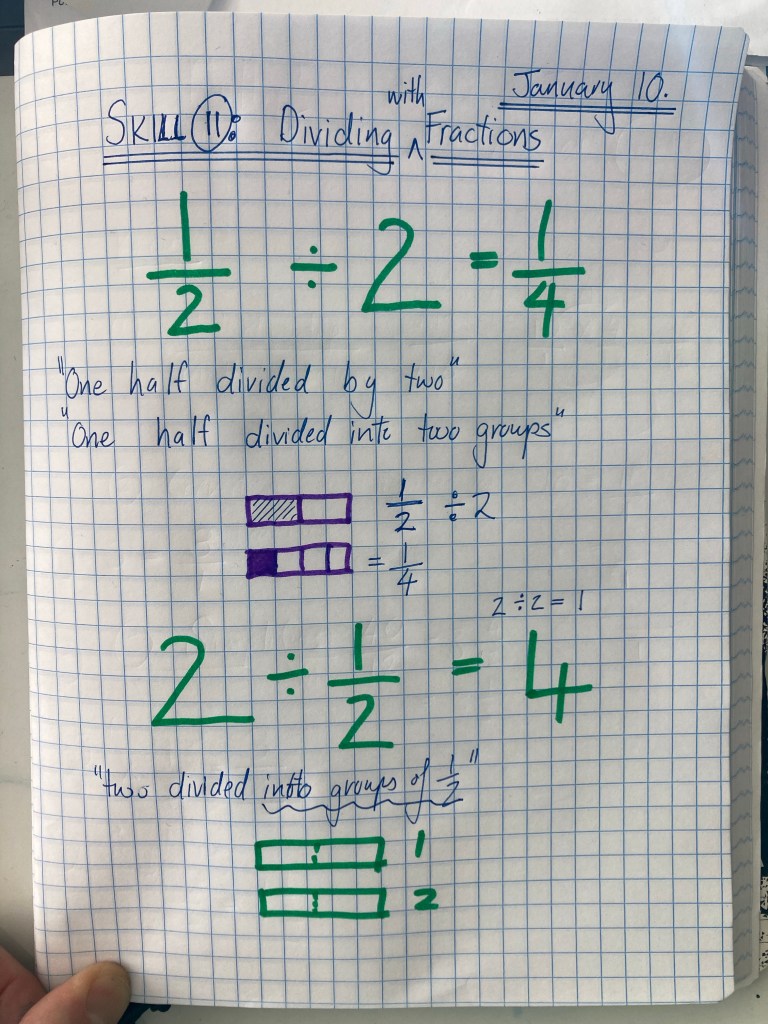 January 10.
SKILL 11: Dividing with Fractions
1/2 ÷ 2 = 1/4
"One half divided by two"
"One half divided into two groups"
1/2 ÷ 2
= 1/4
2 ÷ 2 = 1
2 ÷ 1/2 = 4
"two divided into groups of 1/2"
1
2